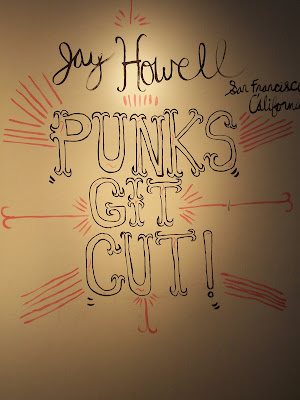 Jay Howell
San Francisco
California
PUNKS
GIT
CUT!